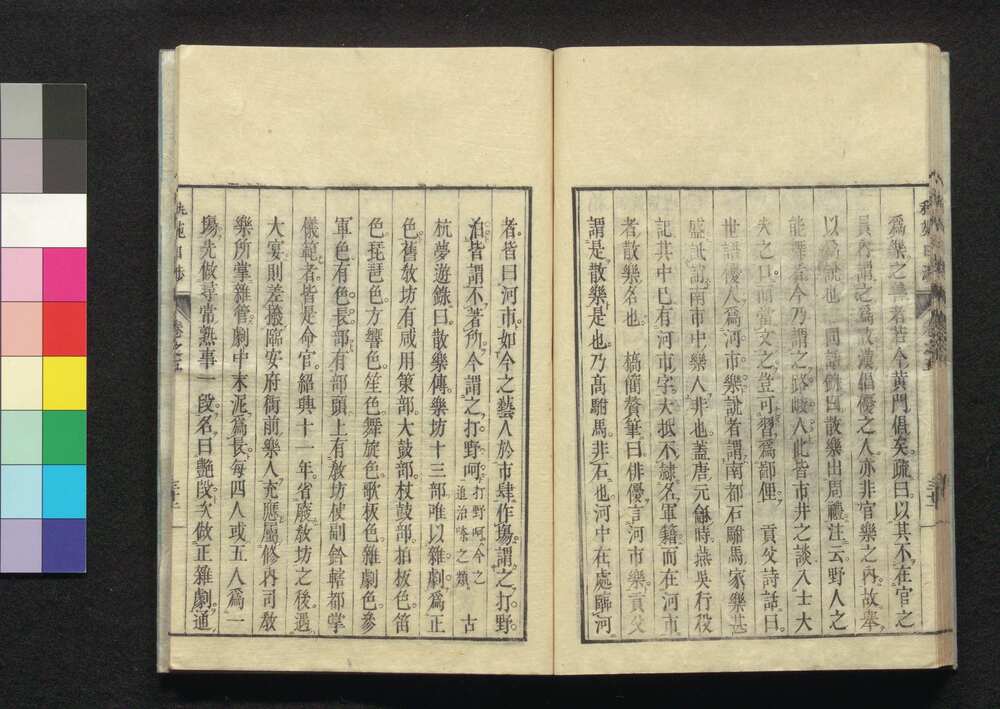 爲樂之善者若今黃門倡矣疏曰以其不在官之
員內謂之爲散漢倡優之人亦非官樂之內故擧
以爲說也 同話錄曰散樂出周禮注云野人之
能舞者今乃謂之路岐人此皆市井之談入士大
夫之口而當文之豈可習爲鄙俚 貢父詩話曰
世語優人爲河市樂說者謂南都石駙馬家樂甚
盛詆誚南市中樂人非也蓋唐元龢時燕吳行役
記其中已有河市字大抵不隷名軍籍而在河市
者散樂名也 槁簡贅筆曰俳優言河市樂貢父
謂是散樂是也乃髙駙馬非石也河中在處臨河
者皆曰河市如今之藝人於市肆作場謂之打野
泊皆謂不著所今謂之打野呵打野呵今之進治嗏之類 古
杭夢遊錄曰散樂傳樂坊十三部唯以雜劇爲正
色舊敎坊有咸用策部大鼓部杖鼓部拍板色笛
色琵琶色方響色笙色舞旋色歌板色雜劇色參
軍色有色長部有部頭上有敎坊使副鈐轄都掌
儀範者皆是命官紹興十一年省廢敎坊之後遇
大宴則差撥臨安府衙前樂人充應屬修內司敎
樂所掌雜管劇中末泥爲長每四人或五人爲一
場先做尋常熟事一段名曰艶段次做正雜劇通